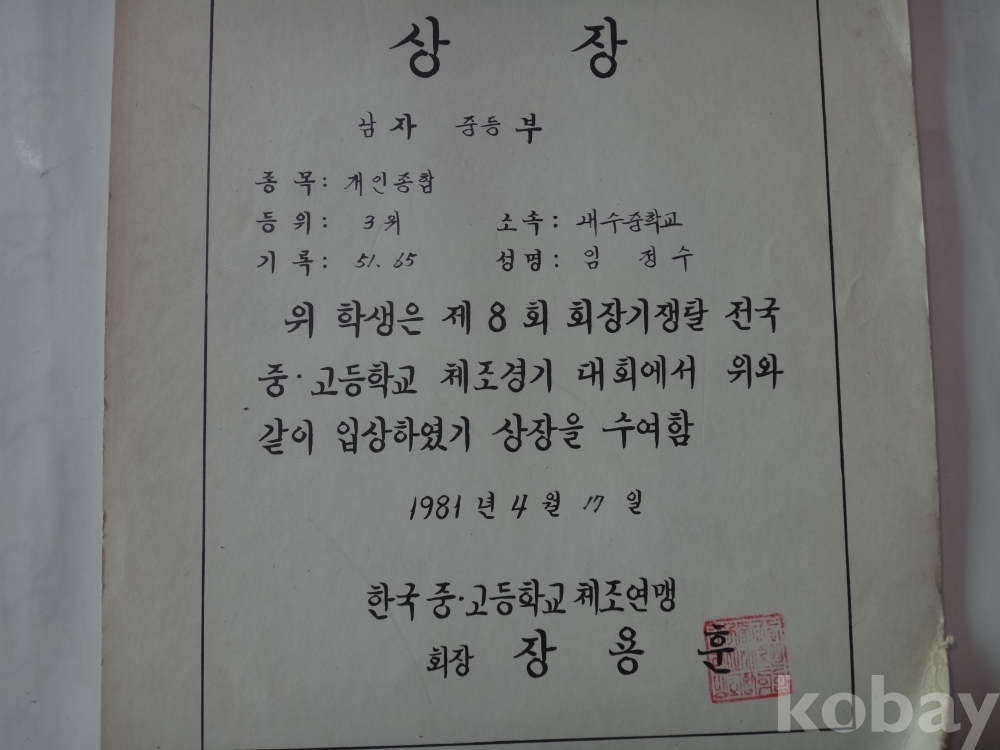 상 장
남자 중등부
종 목: 개인종합
등 위: 3위 소 속: 내수중학교
기 록: 51.65 성 명: 임 정 수
위 학생은 제 8 회 회장기쟁탈 전국
중·고등학교 체조경기 대회에서 위와
같이 입상하였기 상장을 수여함
1981 년 4 월 17 일
한국 중·고등학교 체조연맹
회장 장 용 훈
kobay